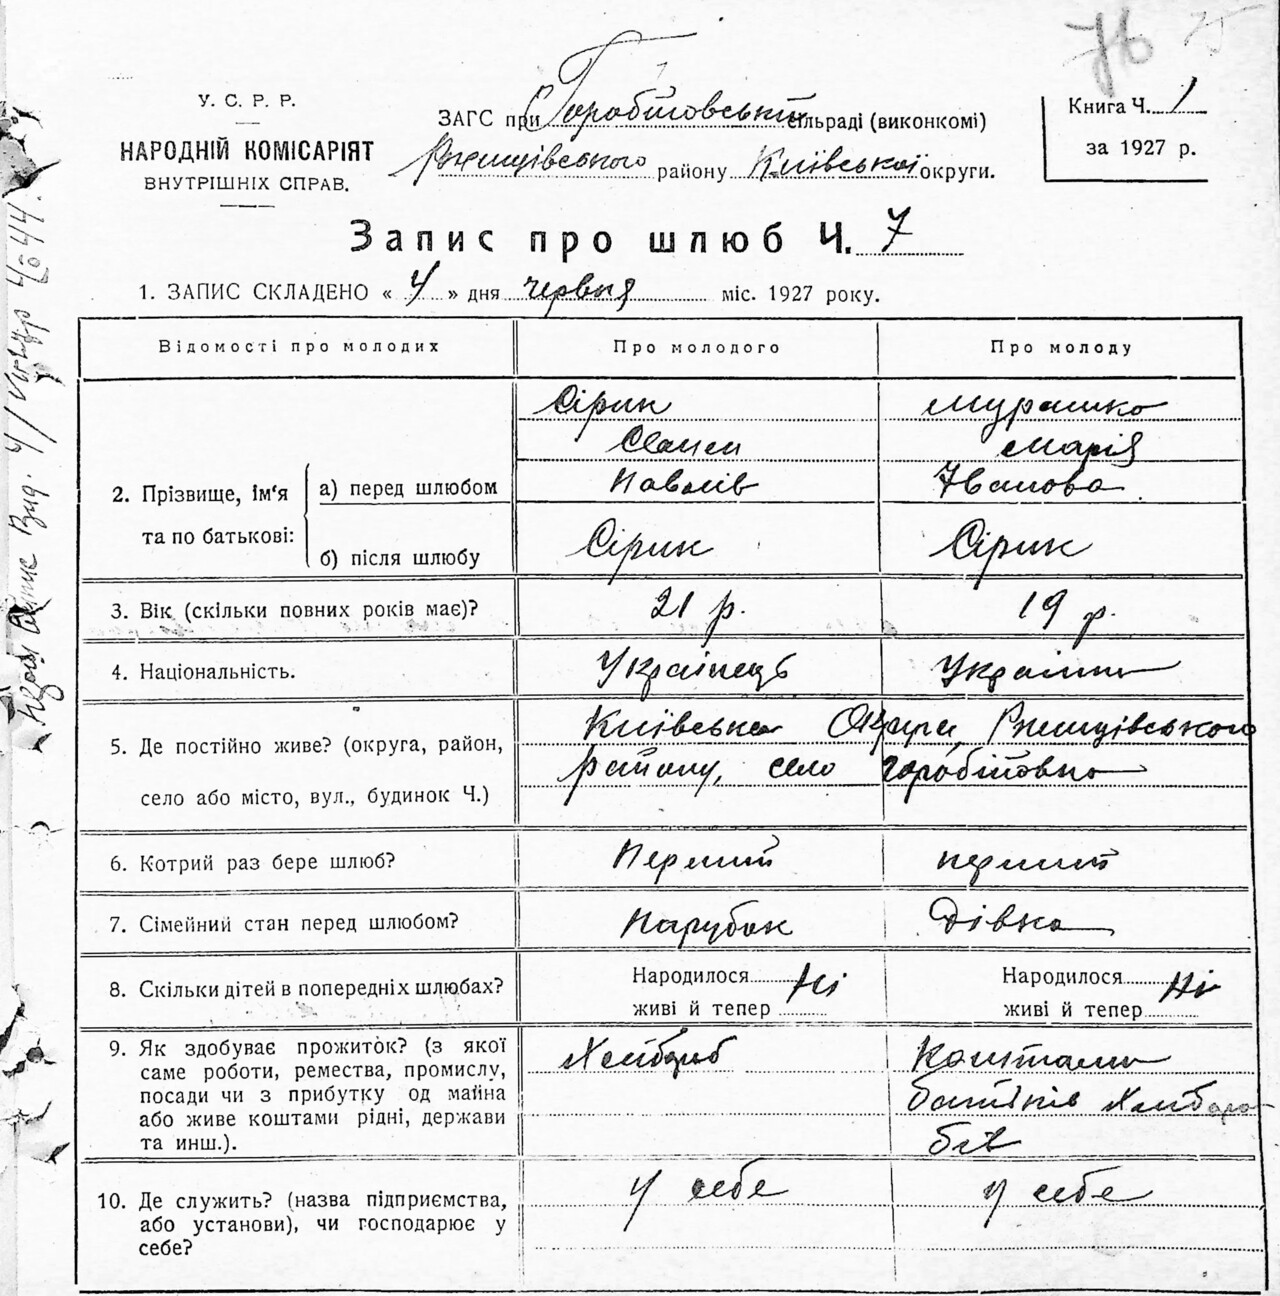 76 75
У. С. Р. Р.
НАРОДНІЙ КОМІСАРІЯТ
ВНУТРІШНІХ СПРАВ.
ЗАГС при Горобіївській сільраді (виконкомі)
Ржищівського району Київської округи.
Книга Ч. 1
за 1927 р.
Запис про шлюб Ч. 7
1. ЗАПИС СКЛАДЕНО « 4 » дня червня міс. 1927 року.
Відомості про молодих Про молодого Про молоду
2. Прізвище, ім'я та по батькові:
а) перед шлюбом
Сірик Мурашко
Семен Марія
Павлів Іванова
б) після шлюбу Сірик Сірик
3. Вік (скільки повних років має)? 21 р. 19 р.
4. Національність. Українець Українка
5. Де постійно живе? (округа, район,
село або місто, вул., будинок Ч.)
Київська Округа, Ржищівського
району, село Горобіївка
6. Котрий раз бере шлюб? Перший перший
7. Сімейний стан перед шлюбом? Парубок Дівка
8. Скільки дітей в попередніх шлюбах? Народилося Ні Народилося Ні
живі й тепер живі й тепер
9. Як здобуває прожиток? (з якої
саме роботи, ремества, промислу,
посади чи з прибутку од майна
або живе коштами рідні, держави
та инш.).
Хлібороб Коштами
батьків Хліборо-
бів
10. Де служить? (назва підприємства,
або установи), чи господарює у
себе?
У себе у себе